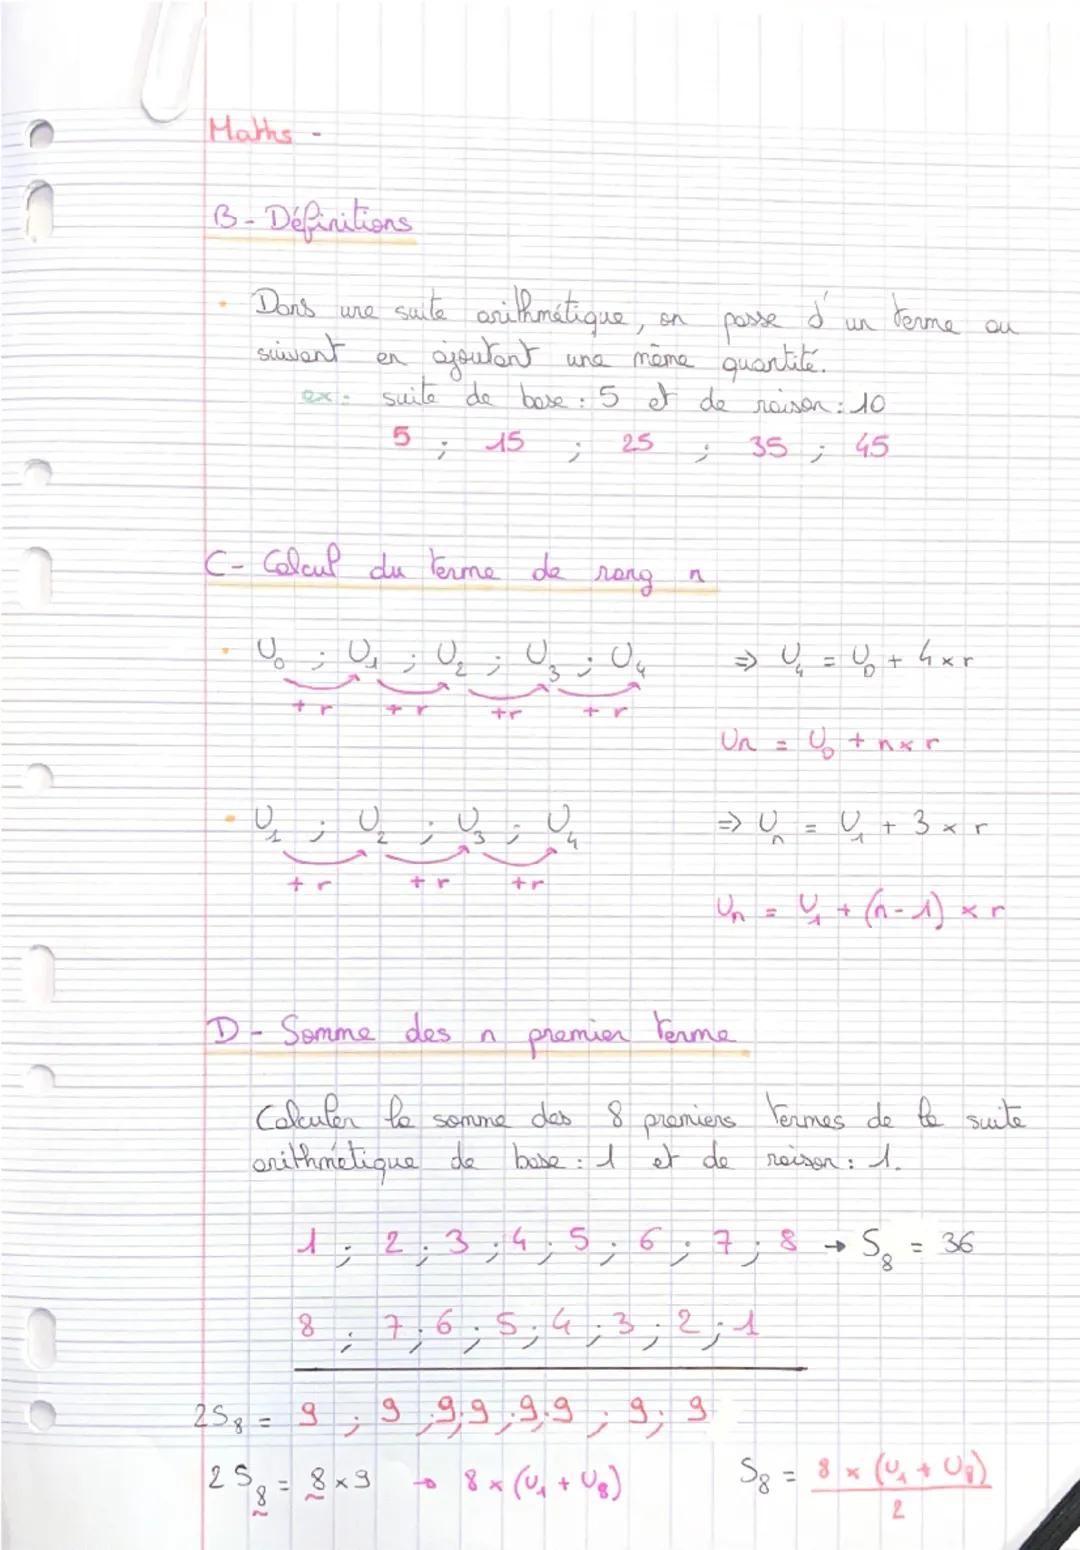 Maths -
B - Définitions
• Dans une suite arithmétique, on passe d'un terme au
suivant en ajoutant une même quantité.
ex : suite de base : 5 et de raison : 10
5 ; 15 ; 25 ; 35 ; 45
C - Calcul du terme de rang n
• U₀ ; U₁ ; U₂ ; U₃ ; U₄ ⇒ U₄ = U₀ + 4 × r
+ r + r + r + r
Un = U₀ + n × r
• U₁ ; U₂ ; U₃ ; U₄ ⇒ Uₙ = U₁ + 3 × r
+ r + r + r
Uₙ = U₁ + (n - 1) × r
D - Somme des n premier terme
Calculer la somme des 8 premiers termes de la suite
arithmétique de base : 1 et de raison : 1.
1 ; 2 ; 3 ; 4 ; 5 ; 6 ; 7 ; 8 → S₈ = 36
8 ; 7 ; 6 ; 5 ; 4 ; 3 ; 2 ; 1
2S₈ = 9 ; 9 ; 9 ; 9 ; 9 ; 9 ; 9 ; 9
2 S₈ = 8 × 9 → 8 × (U₁ + U₈) S₈ = 8 × (U₁ + U₈)
2